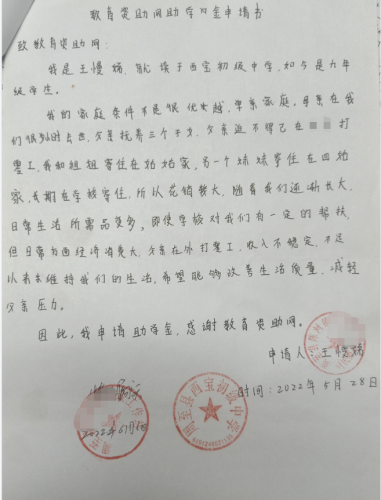 教育资助网助学金申请书
致教育资助网：
我是王慢娣，就读于西宝初级中学，如今是九年
级学生。
我的家庭条件不是很优越，单亲家庭。母亲在我
们很小时去世，父亲抚养三个子女，父亲迫不得已在 打
零工，我和姐姐寄住在姑姑家，另一个妹妹寄住在四姑
家，长期在学校寄住，所以花销较大，随着我们逐渐长大，
日常生活所需品变多，即使学校对我们有一定的帮扶，
但日常方面经济消费大，父亲在外打零工，收入不稳定，不足
以来去维持我们的生活，希望能够改善生活质量，减轻
父亲压力。
因此，我申请助学金，感谢教育资助网。
申请人：王
时间：2022年5月28日
周至县西宝初级中学
2022年6月